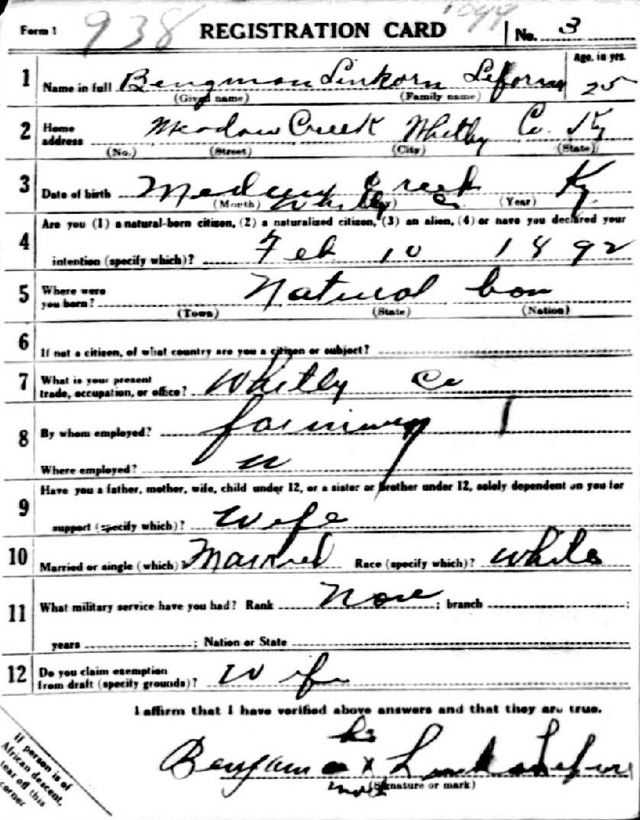 Form 1 938 REGISTRATION CARD 1044 No. 3
1 Name in full Bengman Linkorn Leforse Age, in yrs. 25
(Given name) (Family name)
2 Home address Meadow Creek Whitly Co. Ky
(No.) (Street) (City) (State)
3 Date of birth Creek Ky
(Month) Whitly Co (Year)
4 Are you (1) a natural-born citizen, (2) a naturalized citizen, (3) an alien, (4) or have you declared your
intention (specify which)? Feb 10 1892
5 Where were you born? Natural bon
(Town) (State) (Nation)
6 If not a citizen, of what country are you a citizen or subject?
7 What is your present trade, occupation, or office? Whitly Co
8 By whom employed? farming
Where employed? "
9 Have you a father, mother, wife, child under 12, or a sister or brother under 12, solely dependent on you for
support (specify which)? Wife
10 Married or single (which)? Married Race (specify which)? White
11 What military service have you had? Rank None ; branch ;
years ; Nation or State
12 Do you claim exemption from draft (specify grounds)? Wife
I affirm that I have verified above answers and that they are true.
his
Benjamin x
(Signature or mark)
If person is of
African descent,
tear off this
corner.